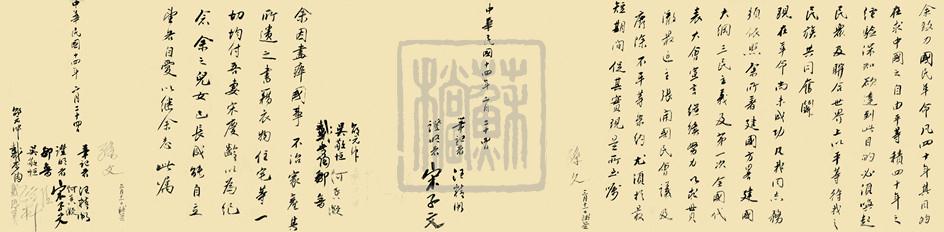 余致力國民革命凡四十年其目的
在求中國之自由平等積四十年之
經驗深知欲達到此目的必須喚起
民眾及聯合世界上以平等待我之
民族共同奮鬥
現在革命尚未成功凡我同志務
須依照余所著建國方畧建國
大綱三民主義及第一次全國代
表大會宣言繼續努力以求貫
澈最近主張開國民會議及
廢除不平等條約尤須於最
短期間促其實現是所至囑
孫文
三月十一日補簽
中華民國十四年二月二十四日
筆記者 汪精衛
證明者 宋子文
吳敬恒 何香凝
戴恩賽 鄒魯
余因盡瘁國事不治家產其
所遺之書籍衣物住宅等一
切均付吾妻宋慶齡以為紀
念余之兒女已長成能自立
望各自愛以繼余志此囑
孫文
三月十一日補簽
中華民國十四年二月二十四日
筆記者 汪精衛
證明者 宋子文
何香凝
吳敬恒
鄒魯
戴恩賽